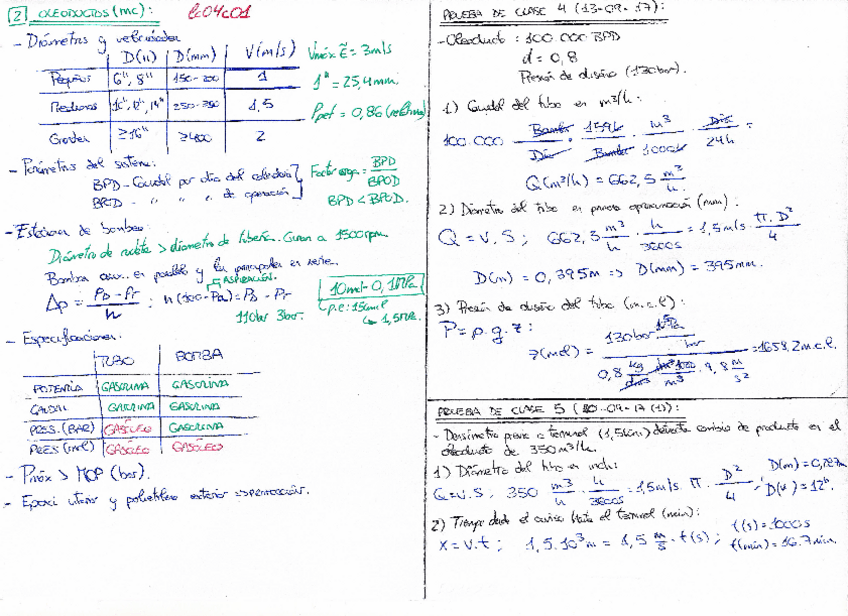 2 OLEODUCTOS (mc): lc04c01
- Diámetros y velocidades
D(in) D(mm) V(m/s)
Pequeños 6", 8" 150-200 1
Medianos 10", 12", 14" 250-350 1,5
Grandes ≥16" ≥400 2
Vmáx = 3m/s
1" = 25,4mm.
ρref = 0,86 (relativa)
- Parámetros del sistema:
BPD - Caudal por día del calendario
BPOD - " " " de operación
Factor carga = BPD / BPOD
BPD < BPOD.
- Estación de bombeo:
Diámetro de rodete > diámetro de tubería. Giran a 1500rpm
Bomba aux. en paralelo y las principales en serie.
Aspiración.
Δp = (PD - Pr) / n ; n(100-Pa) = PD - Pr
110bar 3bar.
10mcl - 0,1MPa
p.e: 150mcl
↳ 1,5MPa.
- Especificaciones:
TUBO BOMBA
POTENCIA GASOLINA GASOLINA
CAUDAL GASOLINA GASOLINA
PRES. (BAR) GASÓLEO GASOLINA
PRES (mcl) GASÓLEO GASÓLEO
- Pmáx > MOP (bar).
- Epoxi interior y polietileno exterior
PRUEBA DE CLASE 4 (13-09-17):
- Oleoducto: 100.000 BPD
d = 0,8
Presión de diseño (130bar).
1) Caudal del tubo en m³/h:
100.000 Barril / Día · 159L / Barril · m³ / 1000L · Día / 24h =
Q(m³/h) = 662,5 m³/h.
2) Diámetro del tubo en primera aproximación (mm):
Q = v.S ; 662,5 m³/h · h/3600s = 1,5m/s · π.D²/4
D(m) = 0,395m => D(mm) = 395mm.
3) Presión de diseño del tubo (m.c.l):
P = ρ.g.z :
z(mcl) = 130bar · 10⁵Pa/bar / 0,8 kg/dm³ · dm³ 1000/m³ · 9,8 m/s² = 1658,2 m.c.l.
PRUEBA DE CLASE 5 (20-09-17 (1)):
- Densímetro previo a terminal (1,5km) detecta cambio de producto en el
oleoducto de 350m³/h.
1) Diámetro del tubo en inch:
Q = v.S ; 350 m³/h · h/3600s = 1,5m/s · π · D²/4 ; D(m) = 0,287m
D(") = 12".
2) Tiempo desde el aviso hasta el terminal (min):
x = v.t ; 1,5.10³m = 1,5 m/s · t(s) ; t(s) = 1000s
t(min) = 16.7min.